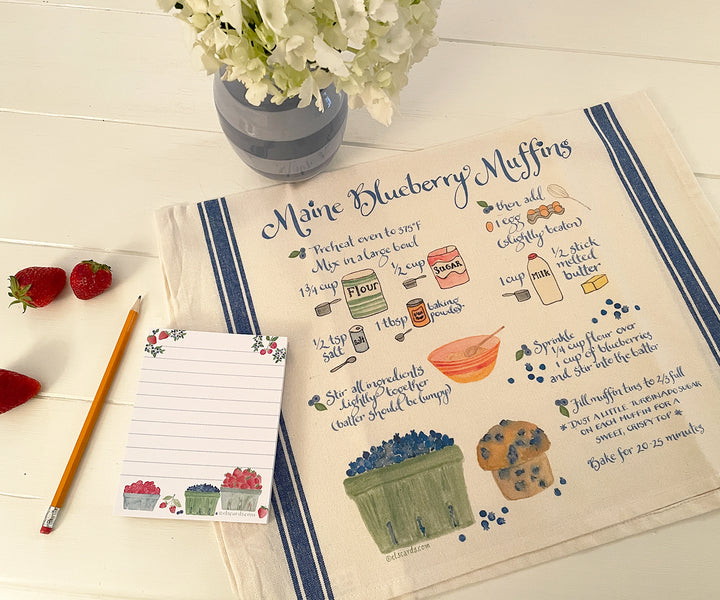 Maine Blueberry Muffins
Preheat oven to 375°F
Mix in a large bowl
1 3/4 cup
Flour
1/2 cup
SUGAR
1/2 tsp
salt
salt
1 tbsp
baking
powder
Stir all ingredients
lightly together
(batter should be lumpy)
then add
1 egg
(slightly beaten)
1 cup
MILK
1/2 stick
melted
butter
Sprinkle
1/4 cup flour over
1 cup of blueberries
and stir into the batter
Fill muffin tins to 2/3 full
* DUST A LITTLE TURBINADO SUGAR
ON EACH MUFFIN FOR A
SWEET, CRISPY TOP *
Bake for 20-25 minutes
©elscards.com
©elscards.com